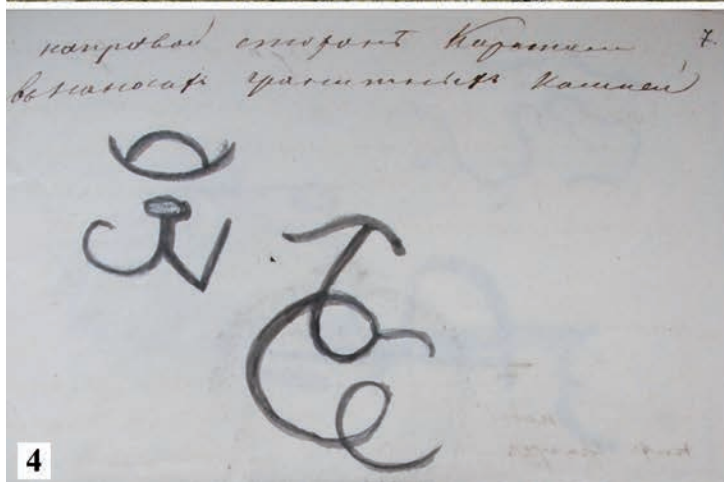 направой сторонѣ 7.
въ наносахъ гранитныхъ камней
4